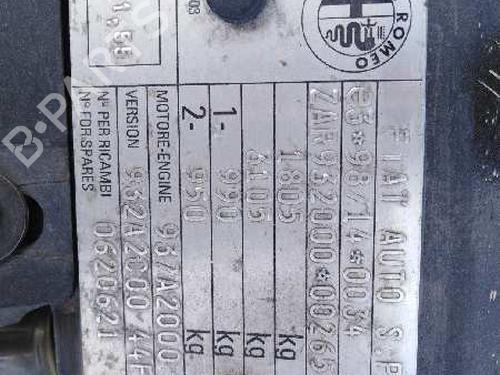 ROMEO
FIAT AUTO S.P
e3*98/14*0034
ZAR932000*00265
1805 kg
3105 kg
1- 990 kg
2- 950 kg
MOTORE-ENGINE 937A2000
VERSION 932A2C00 44F
N° PER RICAMBI 0620621
N° FOR SPARES
1,55
B-PARTS